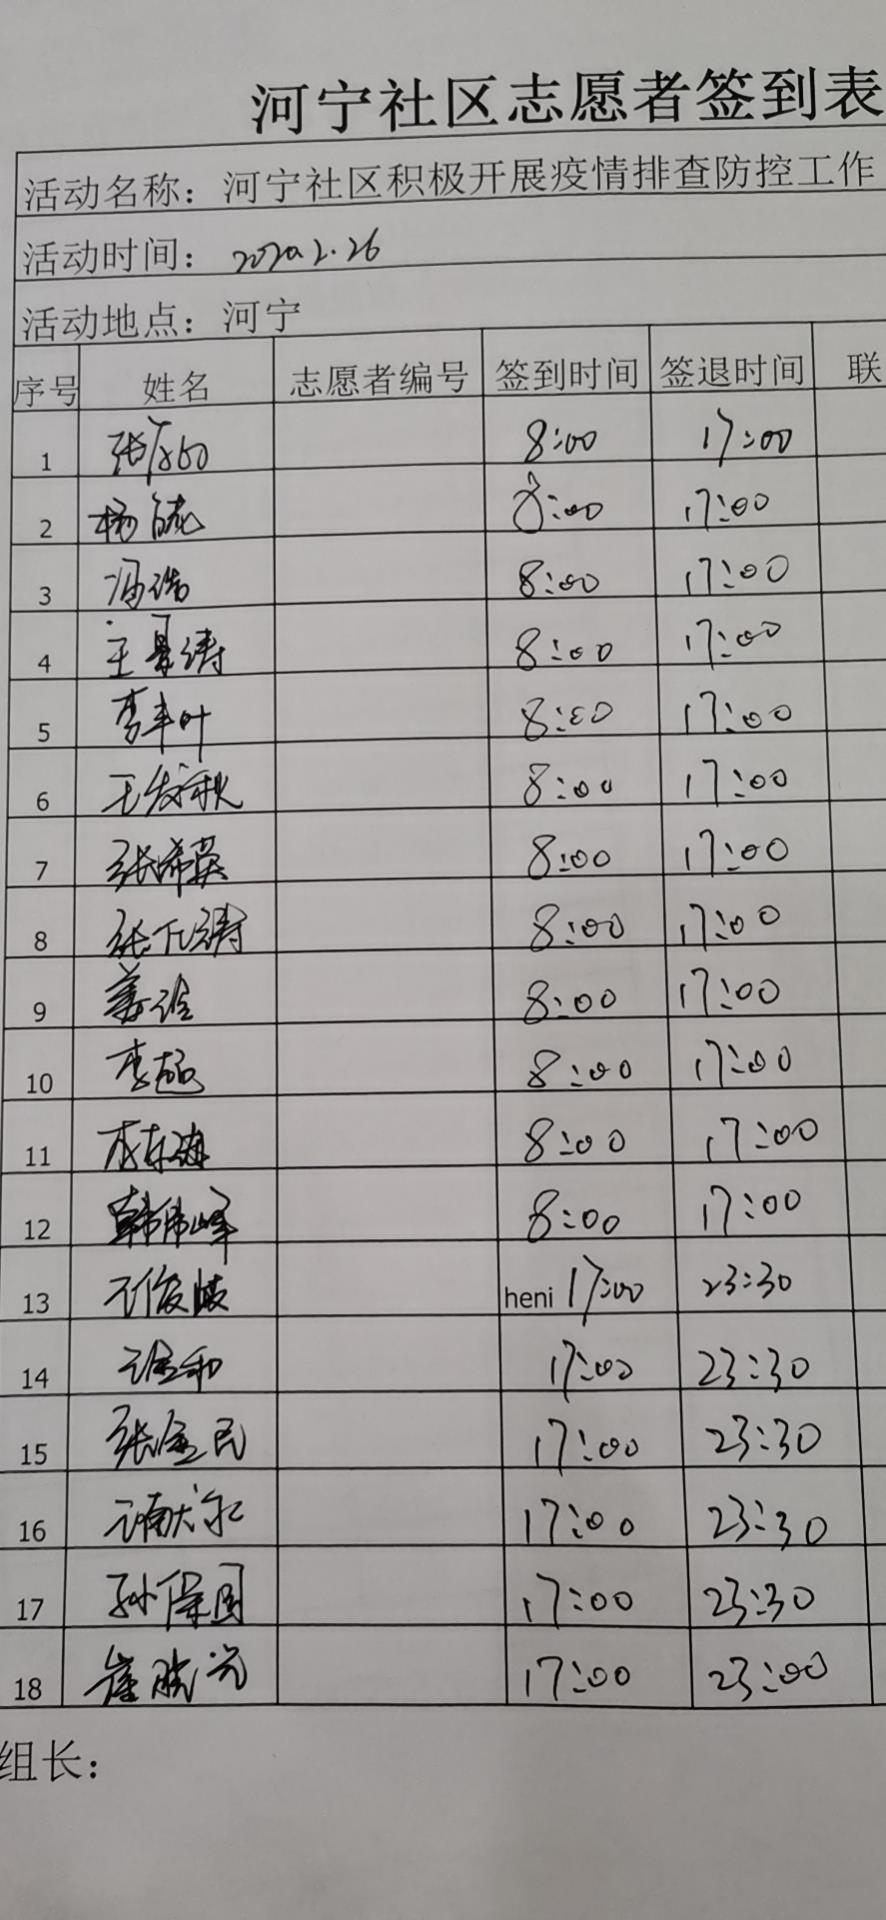 河宁社区志愿者签到表
活动名称：河宁社区积极开展疫情排查防控工作
活动时间：2020.2.26
活动地点：河宁
序号 姓名 志愿者编号 签到时间 签退时间 联
1 8:00 17:00
2 杨 8:00 17:00
3 冯浩 8:00 17:00
4 王景涛 8:00 17:00
5 李丰叶 8:00 17:00
6 王发秋 8:00 17:00
7 张希英 8:00 17:00
8 张 涛 8:00 17:00
9 姜 8:00 17:00
10 李超 8:00 17:00
11 东海 8:00 17:00
12 韩伟峰 8:00 17:00
13 王俊 heni 17:00 23:30
14 和 17:00 23:30
15 张金民 17:00 23:30
16 17:00 23:30
17 孙保国 17:00 23:30
18 崔 17:00 23:00
组长：